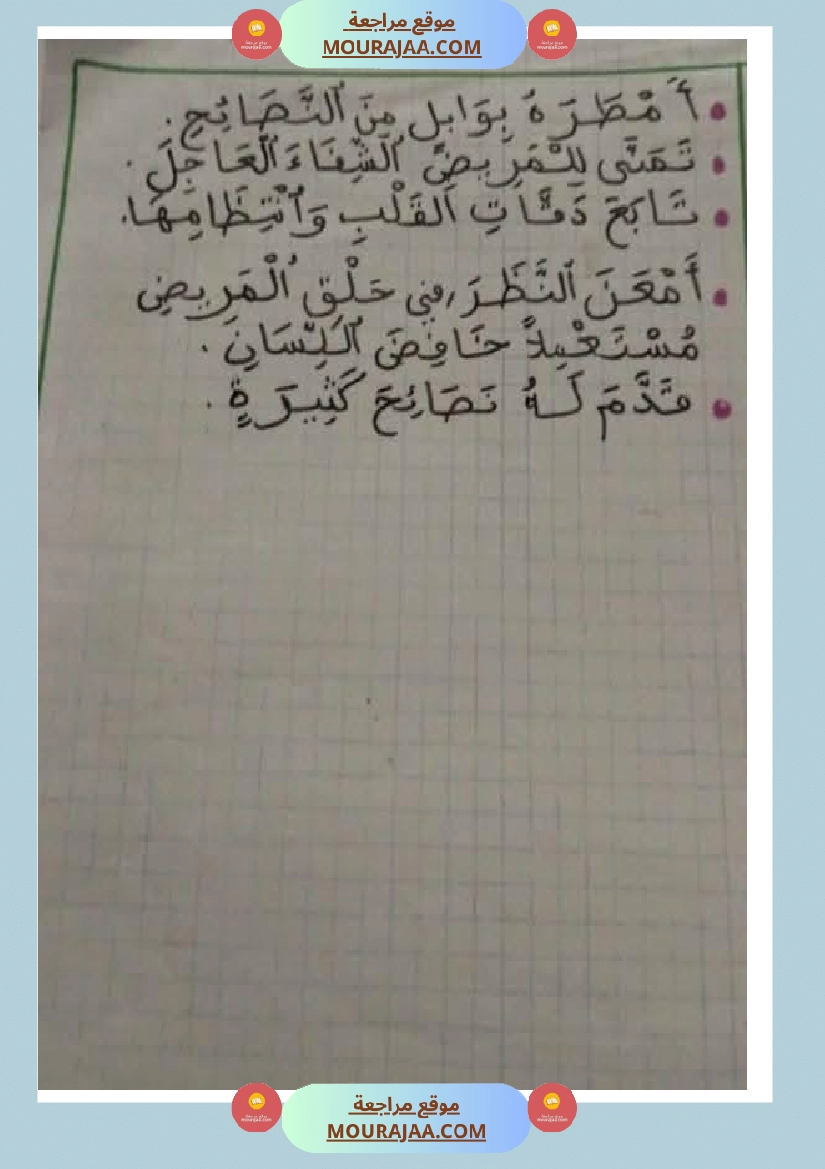 موقع مراجعة
MOURAJAA.COM
• أَمْطَرَهُ بِوَابِلٍ مِنَ ٱلنَّصَائِحِ.
• تَمَنَّى لِلْمَرِيضِ ٱلشِّفَاءَ ٱلْعَاجِلَ.
• تَابَعَ دَقَّاتِ ٱلقَلْبِ وَٱنْتِظَامِهَا.
• أَمْعَنَ ٱلنَّظَرَ فِي حَلْقِ ٱلْمَرِيضِ
مُسْتَعْمِلاً خَافِضَ ٱللِّسَانِ.
• قَدَّمَ لَهُ نَصَائِحَ كَثِيرَةٍ.
موقع مراجعة
MOURAJAA.COM